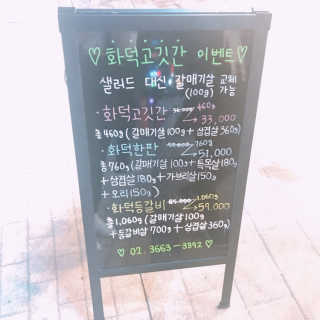 ♡화덕고깃간 이벤트♡
샐러드 대신 갈매기살 교체
(100g) 가능
·화덕고깃간 460g
→33,000
총460g(갈매기살100g+삼겹살360g)
·화덕한판 760g
→51,000
총760g(갈매기살100g+특목살180g
+삼겹살180g+가브리살150g
+오리150g)
·화덕등갈비 1,060g
→59,000
총1,060g(갈매기살100g
+등갈비살700g+삼겹살360g)
♡02.3663-3392♡